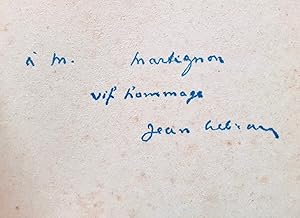 à M. Martignon
vif hommage
Jean Lebrau